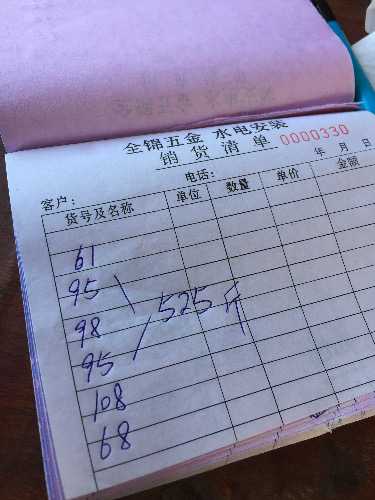 全锦五金 水电安装
销货清单 0000330
年 月 日
客户: 电话:
货号及名称 单位 数量 单价 金额
61
95
98 525斤
95
108
68